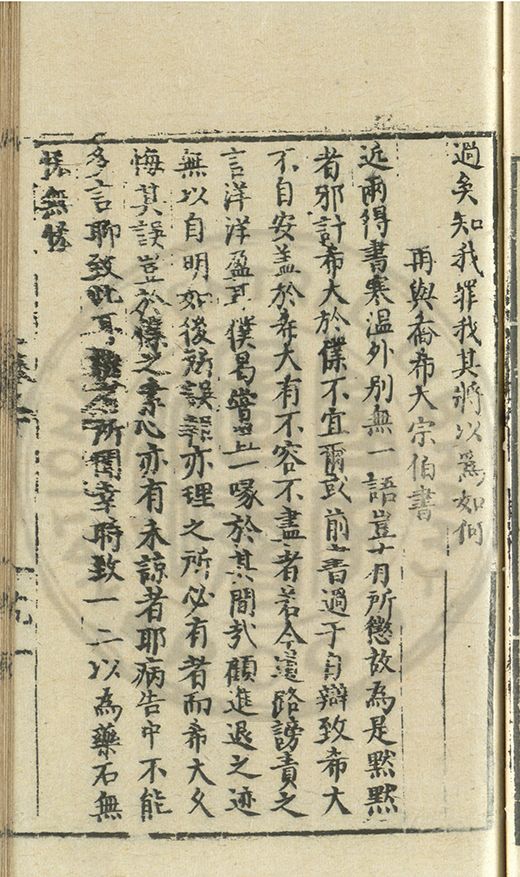 過矣知我罪我其將以爲如何
再與喬希大宗伯書
近兩得書寒温外别無一語豈有所懲故為是默默
者邪計希大於僕不宜爾或前書過于自辯致希大
不自安盖於希大有不容不盡者若今道路謗責之
言洋洋盈耳僕曷嘗置一喙於其間哉顧進退之迹
無以自明如後所誤亦理之所必有者而希大久
悔其誤豈於僕之素心亦有未諒者耶病告中不能
多言聊致此耳所聞幸時致一二以為藥石無
無